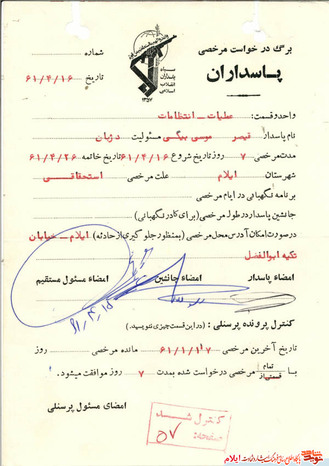 برگ درخواست مرخصی
شماره
پاسداران
تاریخ ۶۱/۴/۱۶
سپاه
پاسداران
انقلاب
اسلامی
۱۳۵۷
واحد و قسمت: عملیات - انتظامات
نام پاسدار قیصر موسی بیگی مسئولیت دژبان
مدت مرخصی ۷ روز تاریخ شروع ۶۱/۴/۱۶ تاریخ خاتمه ۶۱/۴/۲۶
شهرستان ایلام علت مرخصی استحقاقی
برنامه نگهبانی در ایام مرخصی
جانشین پاسدار در طول مرخصی (برای کادر نگهبانی)
در صورت امکان آدرس محل مرخصی (بمنظور جلوگیری از حادثه) ایلام - خیابان
تکیه ابوالفضل
امضاء پاسدار امضاء جانشین امضاء مسئول مستقیم
۶۱/۴/۱۵
کنترل پرونده پرسنلی: (در این قسمت چیزی ننویسید.)
تاریخ آخرین مرخصی ۶۱/۱/۱۷ مانده مرخصی روز
با تمام / قسمتی از مرخصی درخواست شده بمدت ۷ روز موافقت میشود.
امضای مسئول پرسنلی
کنترل شد
صفحه: ۵۷